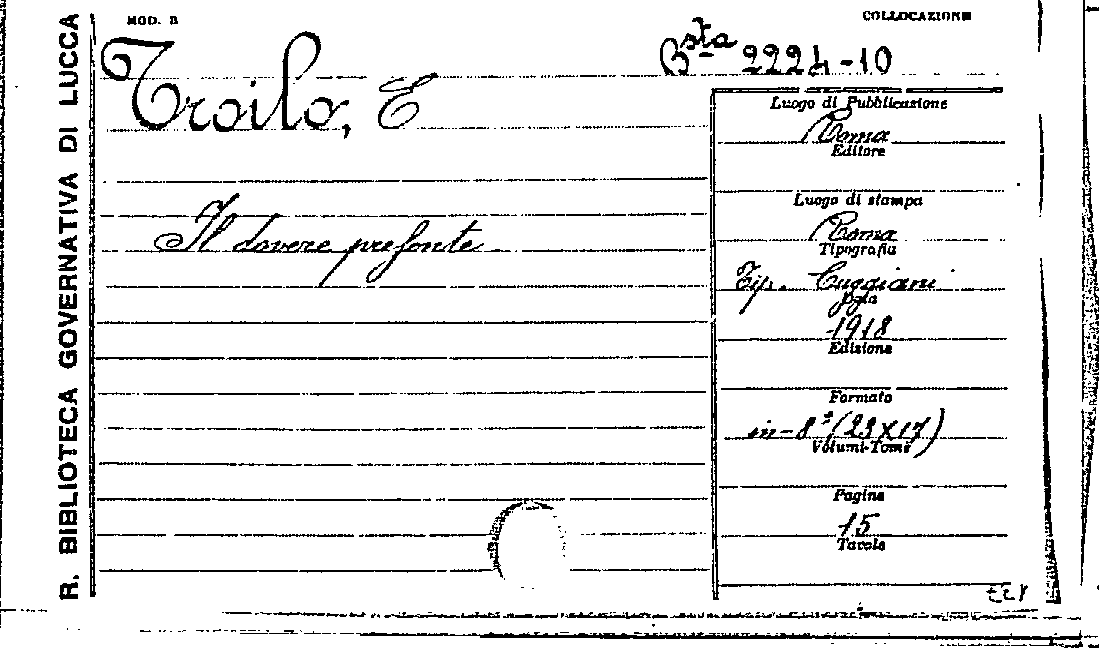 R. BIBLIOTECA GOVERNATIVA DI LUCCA
MOD. B
COLLOCAZIONE
Bsta 2224-10
Troilo, E
Il dovere presente
Luogo di Pubblicazione
Roma
Editore
Luogo di stampa
Roma
Tipografia
Tip. Cuggiani
Data
1918
Edizione
Formato
in-8° (23X17)
Volumi-Tomi
Pagine
15
Tavole